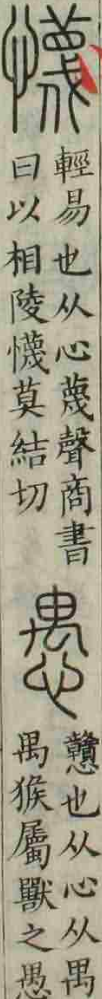 懱
輕易也从心蔑聲商書
曰以相陵懱莫結切
愚
戇也从心从禺
禺猴屬獸之愚